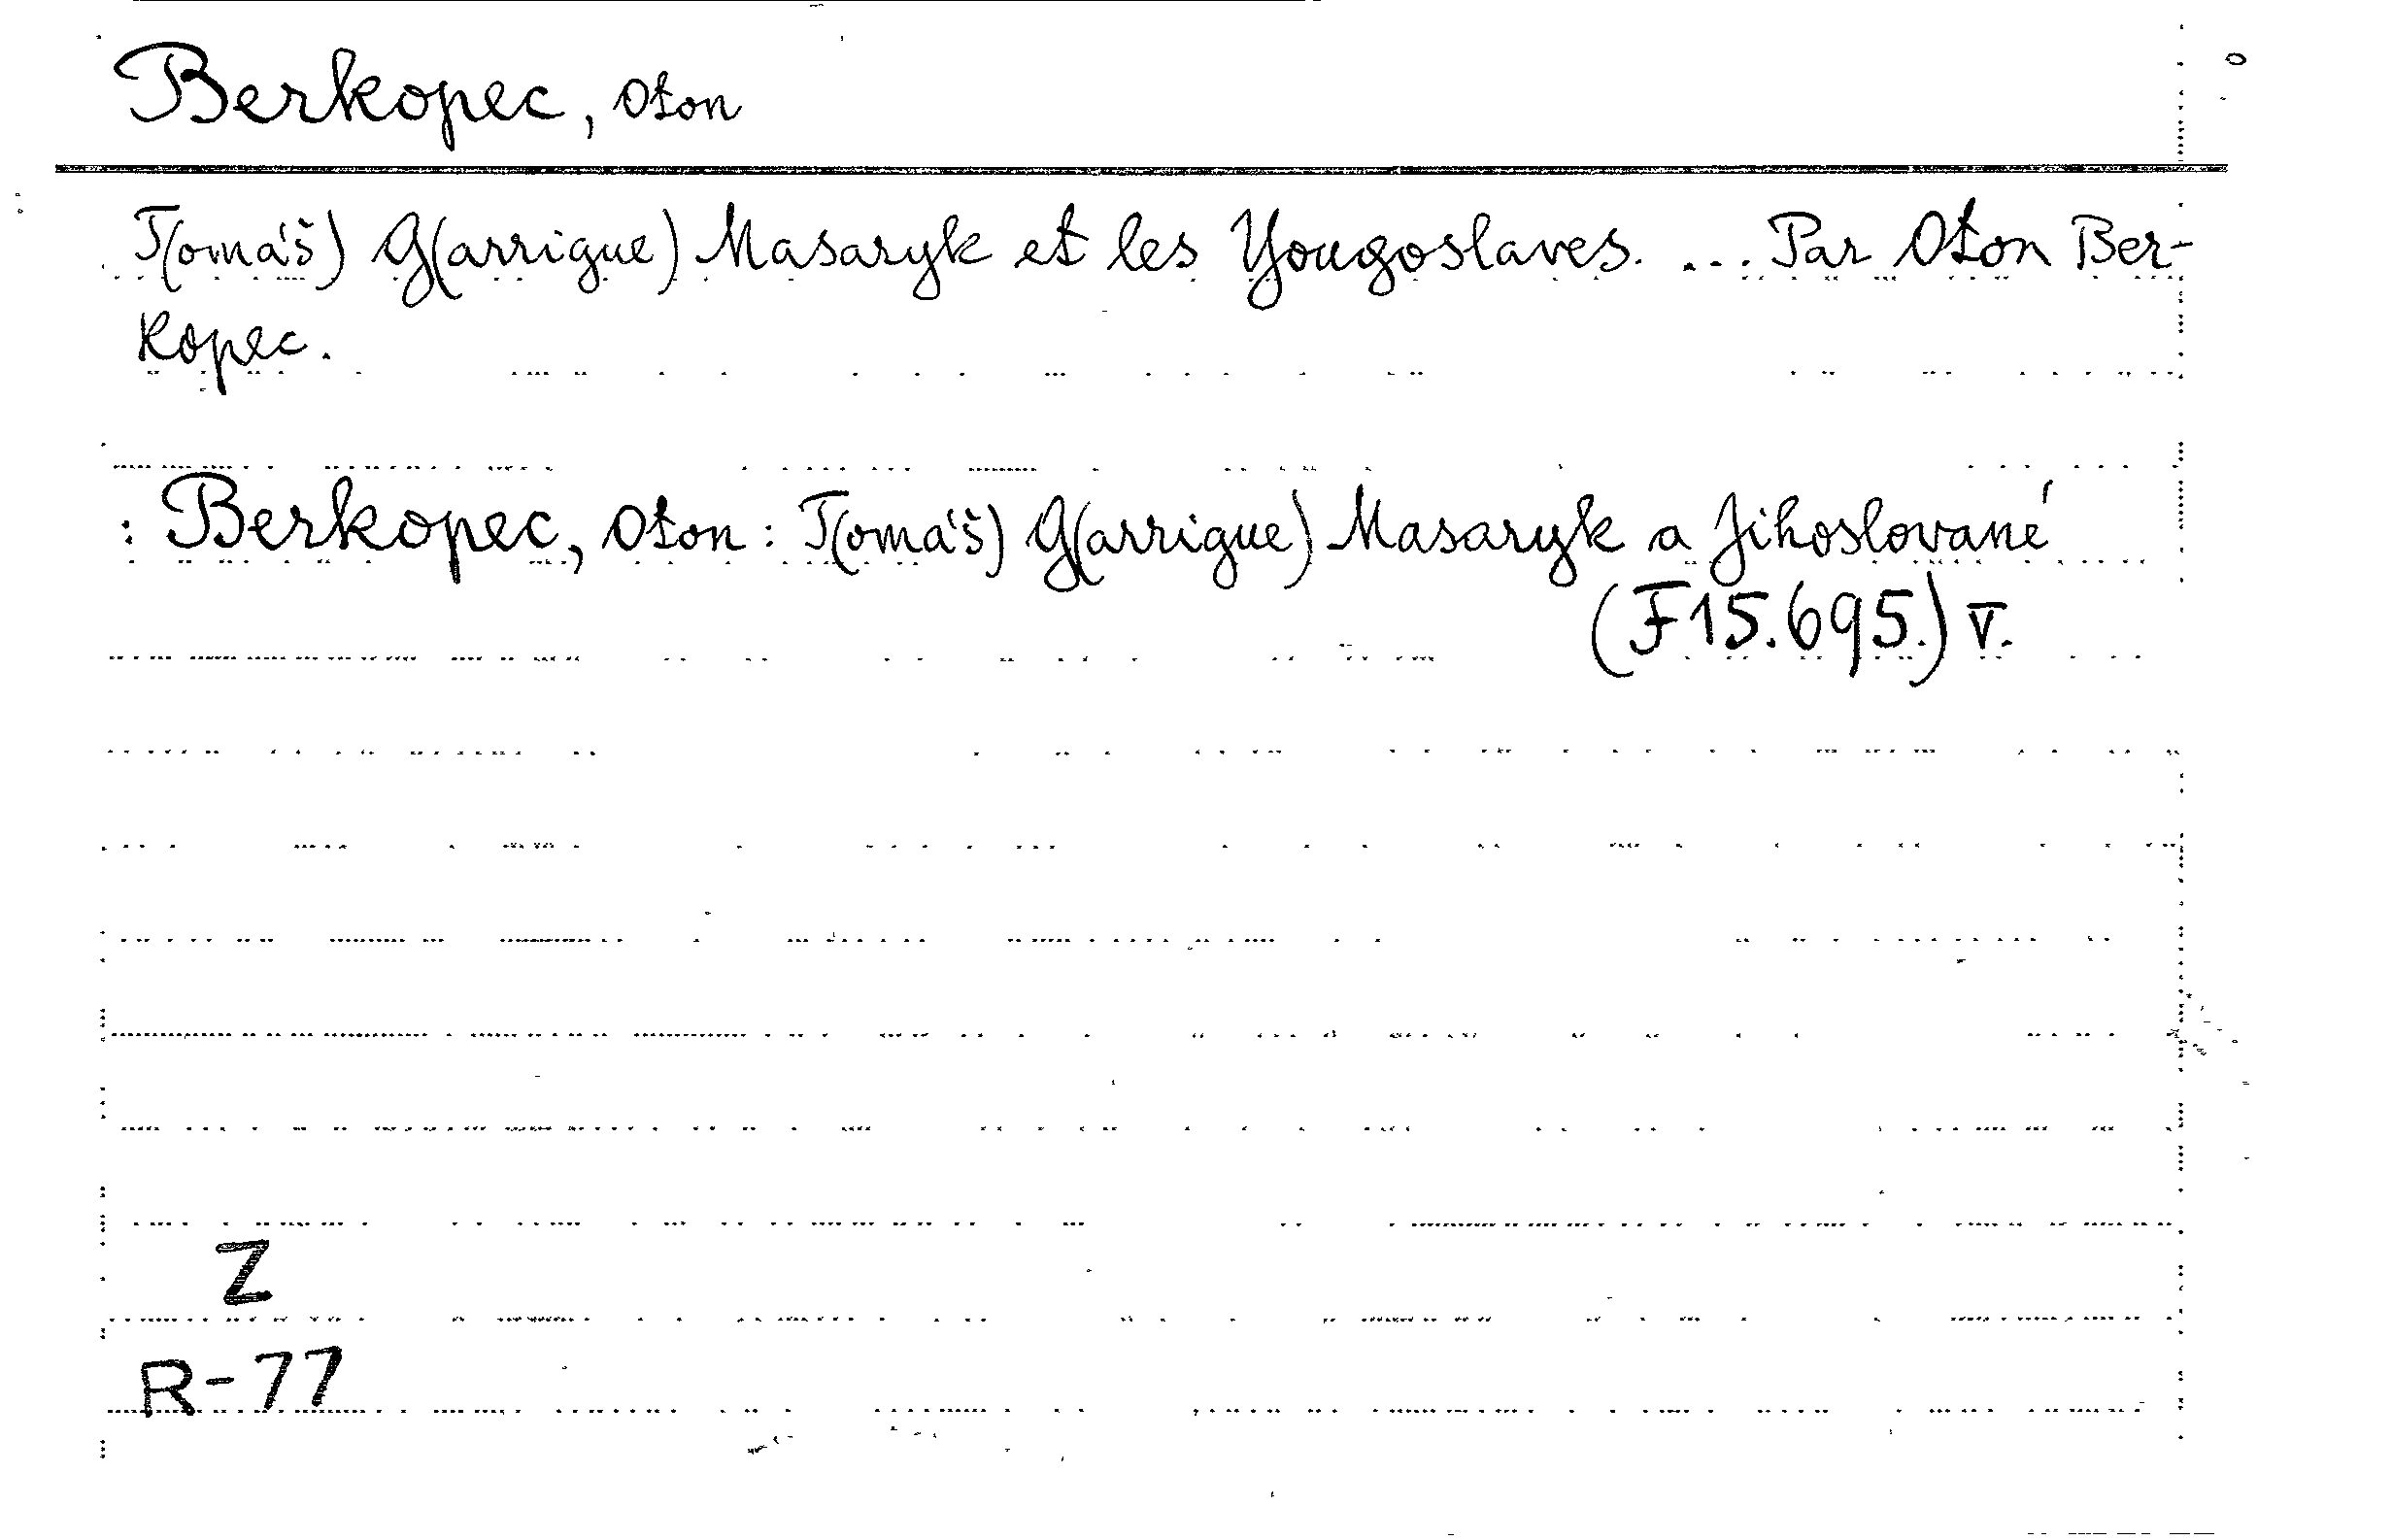 Berkopec, Oton
T(omáš) G(arrigue) Masaryk et les Yougoslaves. ... Par Oton Ber-
kopec.
: Berkopec, Oton: T(omáš) G(arrigue) Masaryk a Jihoslované
(F15.695.) v.
Z
R-77